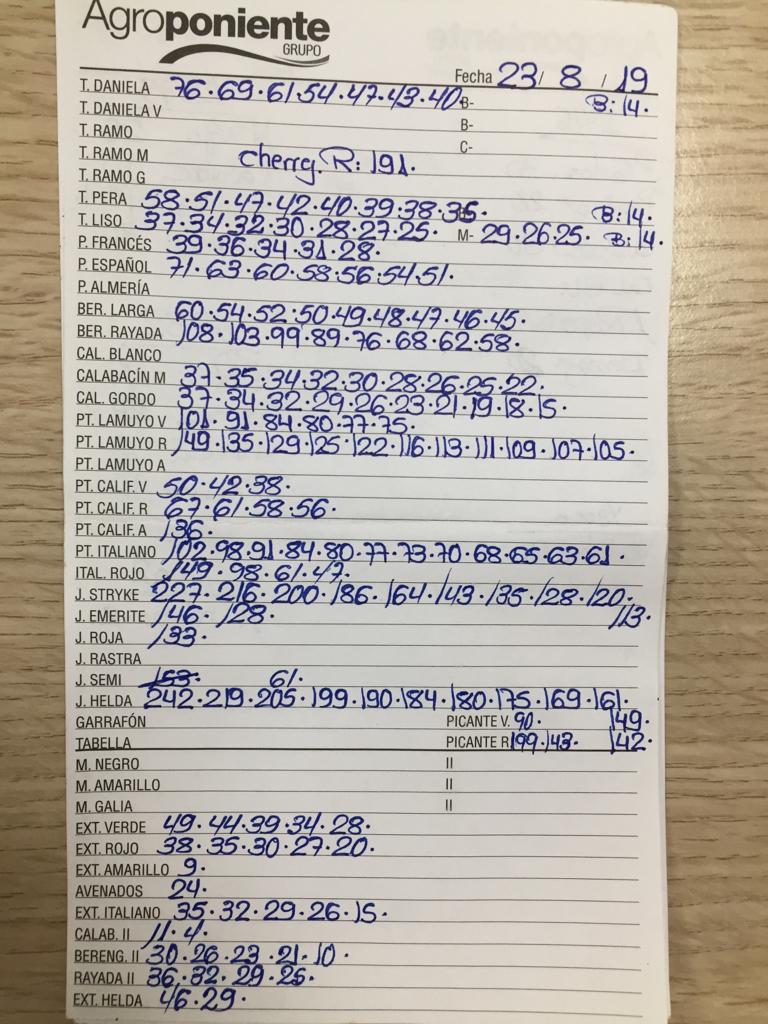 Agroponiente
GRUPO
Fecha 23/ 8 /19
T. DANIELA 76·69·61·54·47·43·40· B- B:14·
T. DANIELA V B-
T. RAMO C-
T. RAMO M cherry. R: 191.
T. RAMO G
T. PERA 58·51·47·42·40·39·38·36· B:14·
T. LISO 37·34·32·30·28·27·25· M- 29·26·25· B:14·
P. FRANCÉS 39·36·34·31·28·
P. ESPAÑOL 71·63·60·58·56·54·51·
P. ALMERÍA
BER. LARGA 60·54·52·50·49·48·47·46·45·
BER. RAYADA 108·103·99·89·76·68·62·58·
CAL. BLANCO
CALABACÍN M 37·35·34·32·30·28·26·25·22·
CAL. GORDO 37·34·32·29·26·23·21·19·18·15·
PT. LAMUYO V 101·91·84·80·77·75·
PT. LAMUYO R 149·135·129·125·122·116·113·111·109·107·105·
PT. LAMUYO A
PT. CALIF. V 50·42·38·
PT. CALIF. R 67·61·58·56·
PT. CALIF. A 136·
PT. ITALIANO 102·98·91·84·80·77·73·70·68·65·63·61·
ITAL. ROJO 149·98·61·47·
J. STRYKE 227·216·200·186·164·143·135·128·120·
J. EMERITE 146·128· 113·
J. ROJA 133·
J. RASTRA
J. SEMI 153· 61·
J. HELDA 242·219·205·199·190·184·180·175·169·161·
GARRAFÓN PICANTE V. 90· 149·
TABELLA PICANTE R 199·143· 142·
M. NEGRO II
M. AMARILLO II
M. GALIA II
EXT. VERDE 49·44·39·34·28·
EXT. ROJO 38·35·30·27·20·
EXT. AMARILLO 9·
AVENADOS 24·
EXT. ITALIANO 35·32·29·26·15·
CALAB. II 11·4·
BERENG. II 30·26·23·21·10·
RAYADA II 36·32·29·25·
EXT. HELDA 46·29·